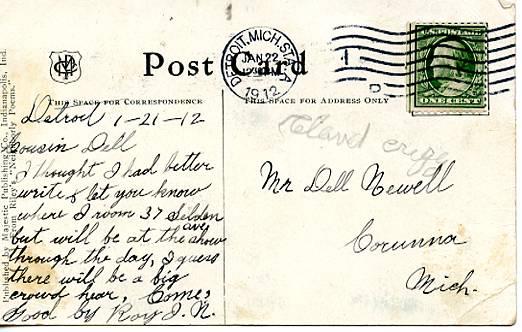 Post Card
DETROIT, MICH. STA. A
JAN 22
1912
U.S. POSTAGE
ONE CENT
THIS SPACE FOR CORRESPONDENCE
THIS SPACE FOR ADDRESS ONLY
Published by Majestic Publishing Co., Indianapolis, Ind.
From Riley's "Neighborly Poems."
Detroit 1-21-12
Cousin Dell
I thought I had better
write & let you know
where I room 37 Selden
ave
but will be at the show
through the day, I guess
there will be a big
crowd near, Come,
Good by Roy J. N.
Mr Dell Newell
Corunna
Mich.